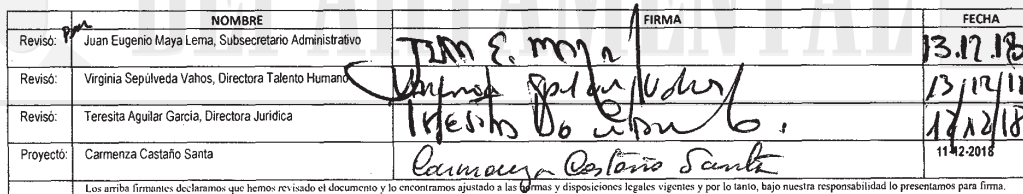 NOMBRE FIRMA FECHA
Revisó: Juan Eugenio Maya Lema, Subsecretario Administrativo JUAN E. MAYA 13.12.18
Revisó: Virginia Sepúlveda Vahos, Directora Talento Humano Virginia Sepulveda Vahos 13/12/18
Revisó: Teresita Aguilar Garcia, Directora Jurídica Teresita Aguilar G. 12/12/18
Proyectó: Carmenza Castaño Santa Carmenza Castaño Santa 11-12-2018
Los arriba firmantes declaramos que hemos revisado el documento y lo encontramos ajustado a las normas y disposiciones legales vigentes y por lo tanto, bajo nuestra responsabilidad lo presentamos para firma.